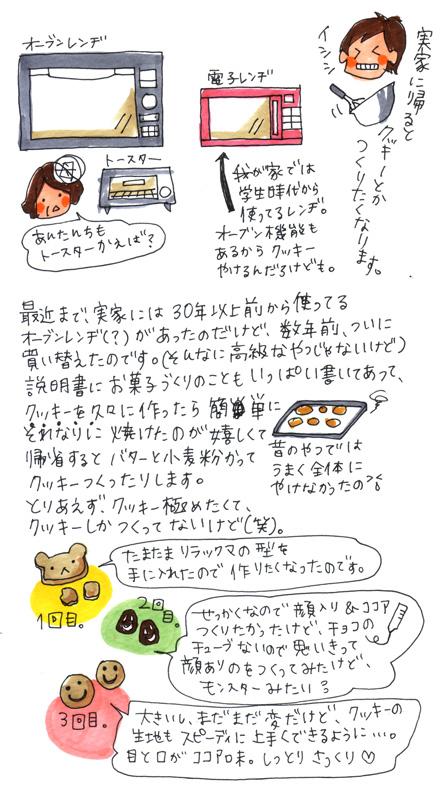 実家に帰ると
イシシ
クッキーとか
つくりたくなります。
オーブンレンヂ
電子レンヂ
トースター
あんたんちも
トースターかえば?
我が家では
学生時代から
使ってるレンヂ。
オーブン機能も
あるからクッキー
やけるんだけども。
最近まで実家には30年以上前から使ってる
オーブンレンヂ(?)があったのだけど、数年前、ついに
買い替えたのです。(そんなに高級なやつじゃないけど)
説明書にお菓子づくりのこともいっぱい書いてあって、
クッキーを久々に作ったら簡単に
それなりに焼けたのが嬉しくて
帰省するとバターと小麦粉かって
クッキーつくったりします。
とりあえず、クッキー極めたくて、
クッキーしかつくってないけど(笑)。
昔のやつでは
うまく全体に
やけなかったの
たまたまリラックマの型を
手に入れたので作りたくなったのです。
1回目。
2回目。
せっかくなので顔入り&ココア
つくりたかったけど、チョコの
チューブないので思いきって
顔ありのをつくってみたけど、
モンスターみたい
3回目。
大きいし、まだまだ変だけど、クッキーの
生地もスピーディに上手くできるように…。
目と口がココア味。しっとりさっくり♡